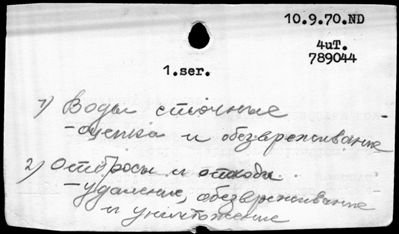 10.9.70.ND
4uT.
789044
1.ser.
1) Воды сточные
- оценка и обезвреживание
2) Отбросы и отходы
- удаление, обезвреживание
и уничтожение